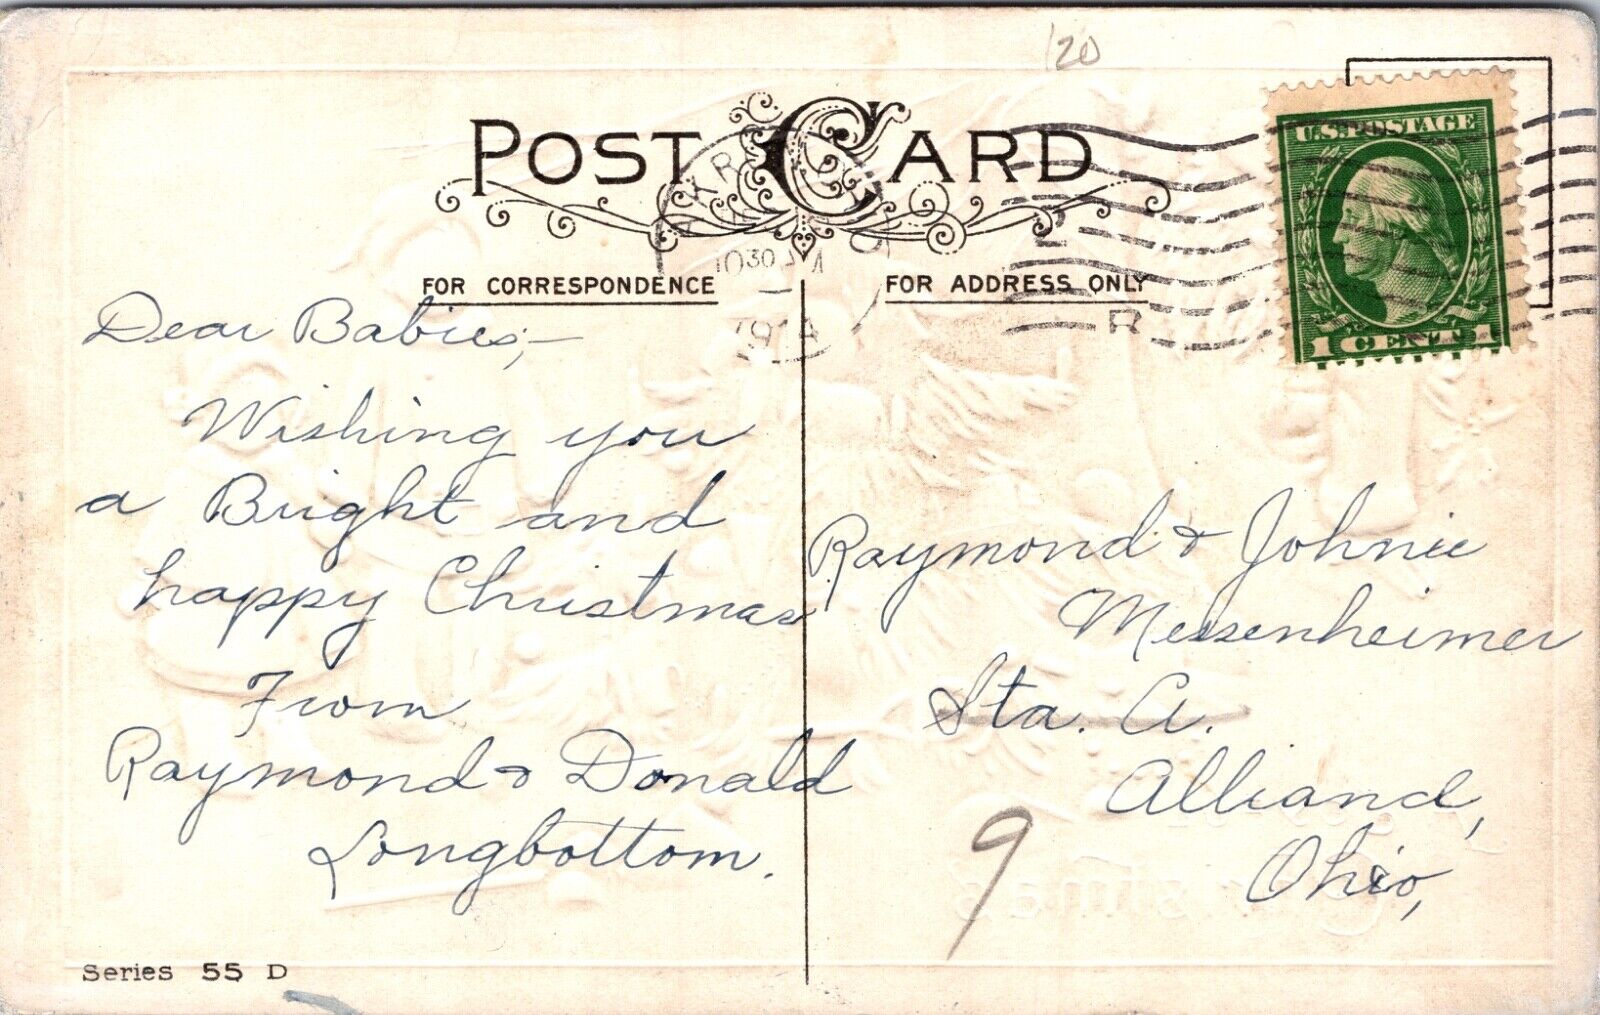 120
POST CARD
U.S. POSTAGE
1 CENT 1
1030
1914
FOR CORRESPONDENCE
FOR ADDRESS ONLY
R
Dear Babies;—
Wishing you
a Bright and
happy Christmas
From
Raymond & Donald
Longbottom.
Raymond & Johnie
Messenheimer
Sta. A.
Alliand,
Ohio,
9
Series 55 D